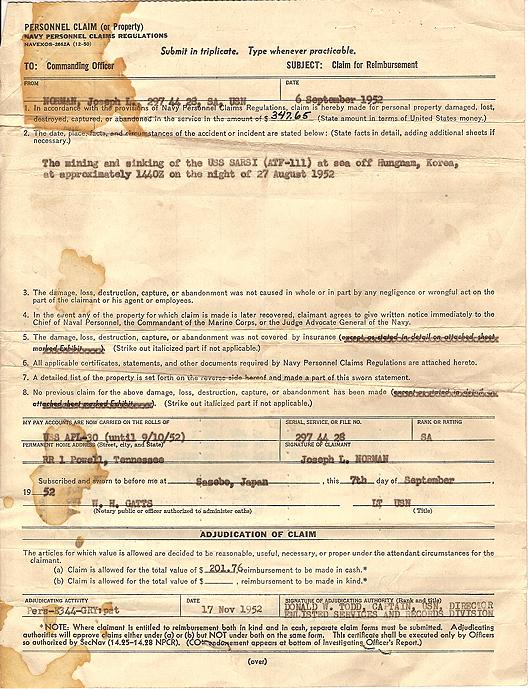 PERSONNEL CLAIM (or Property)
NAVY PERSONNEL CLAIMS REGULATIONS
NAVEXOS-2662A (12-50)
Submit in triplicate. Type whenever practicable.
TO: Commanding Officer
SUBJECT: Claim for Reimbursement
FROM
DATE
NORMAN, Joseph L. 297 44 28, SA, USN
6 September 1952
1. In accordance with the provisions of Navy Personnel Claims Regulations, claim is hereby made for personal property damaged, lost,
destroyed, captured, or abandoned in the service in the amount of $ 347.65 (State amount in terms of United States money.)
2. The date, place, facts, and circumstances of the accident or incident are stated below: (State facts in detail, adding additional sheets if
necessary.)
The mining and sinking of the USS SARSI (ATF-111) at sea off Hungnam, Korea,
at approximately 1440Z on the night of 27 August 1952
3. The damage, loss, destruction, capture, or abandonment was not caused in whole or in part by any negligence or wrongful act on the
part of the claimant or his agent or employees.
4. In the event any of the property for which claim is made is later recovered, claimant agrees to give written notice immediately to the
Chief of Naval Personnel, the Commandant of the Marine Corps, or the Judge Advocate General of the Navy.
5. The damage, loss, destruction, capture, or abandonment was not covered by insurance (except as stated in detail on attached sheet
marked Exhibit ). (Strike out italicized part if not applicable.)
6. All applicable certificates, statements, and other documents required by Navy Personnel Claims Regulations are attached hereto.
7. A detailed list of the property is set forth on the reverse side hereof and made a part of this sworn statement.
8. No previous claim for the above damage, loss, destruction, capture, or abandonment has been made (except as stated in detail on
attached sheet marked Exhibit ). (Strike out italicized part if not applicable.)
MY PAY ACCOUNTS ARE NOW CARRIED ON THE ROLLS OF
SERIAL, SERVICE, OR FILE NO.
RANK OR RATING
USS APL-30 (until 9/10/52)
297 44 28
SA
PERMANENT HOME ADDRESS (Street, city, and State)
SIGNATURE OF CLAIMANT
RR 1 Powell, Tennessee
Joseph L. NORMAN
Subscribed and sworn to before me at Sasebo, Japan, this 7th day of September,
19 52
W. H. GATTS
LT USN
(Notary public or officer authorized to administer oaths)
(Title)
ADJUDICATION OF CLAIM
The articles for which value is allowed are decided to be reasonable, useful, necessary, or proper under the attendant circumstances for the
claimant.
(a) Claim is allowed for the total value of $ 201.76 reimbursement to be made in cash.*
(b) Claim is allowed for the total value of $ , reimbursement to be made in kind.*
ADJUDICATING ACTIVITY
DATE
SIGNATURE OF ADJUDICATING AUTHORITY (Rank and title)
Pers-B344-GRY:pat
17 Nov 1952
DONALD W. TODD, CAPTAIN, USN, DIRECTOR
ENLISTED SERVICES AND RECORDS DIVISION
*NOTE: Where claimant is entitled to reimbursement both in kind and in cash, separate claim forms must be submitted. Adjudicating
authorities will approve claims either under (a) or (b) but NOT under both on the same form. This certificate shall be executed only by Officers
so authorized by SecNav (14.25-14.28 NPCR). (CO's endorsement appears at bottom of Investigating Officer's Report.)
(over)